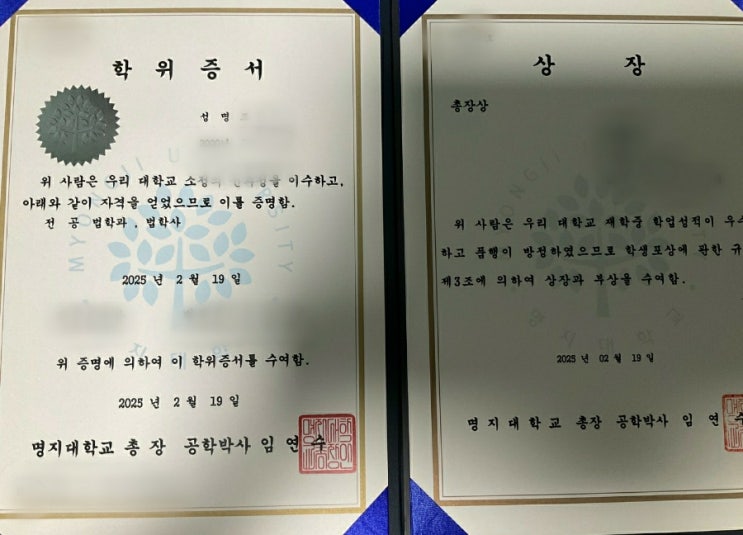 학위증서
성명
위 사람은 우리 대학교 소정의 이수하고,
아래와 같이 자격을 얻었으므로 이를 증명함.
전공 법학과, 법학사
2025년 2월 19일
위 증명에 의하여 이 학위증서를 수여함.
2025년 2월 19일
명지대학교 총장 공학박사 임연수
상장
총장상
위 사람은 우리 대학교 재학중 학업성적이 우수
하고 품행이 방정하였으므로 학생포상에 관한 규
제3조에 의하여 상장과 부상을 수여함.
2025년 02월 19일
명지대학교 총장 공학박사 임연수